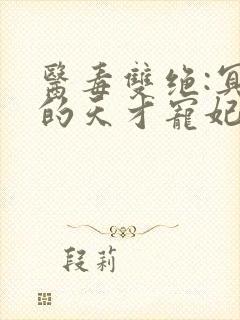 醫毒雙绝:冥
的天才寵妃
段莉